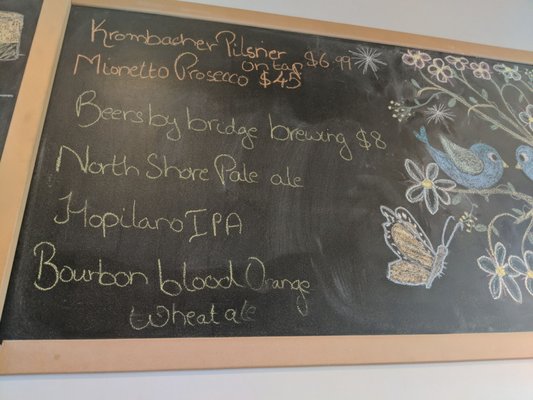 Krombacher Pilsner
on tap $6.99
Mionetto Prosecco $45
Beers by bridge brewing $8
North Shore Pale ale
Hopilano IPA
Bourbon blood Orange
wheat ale